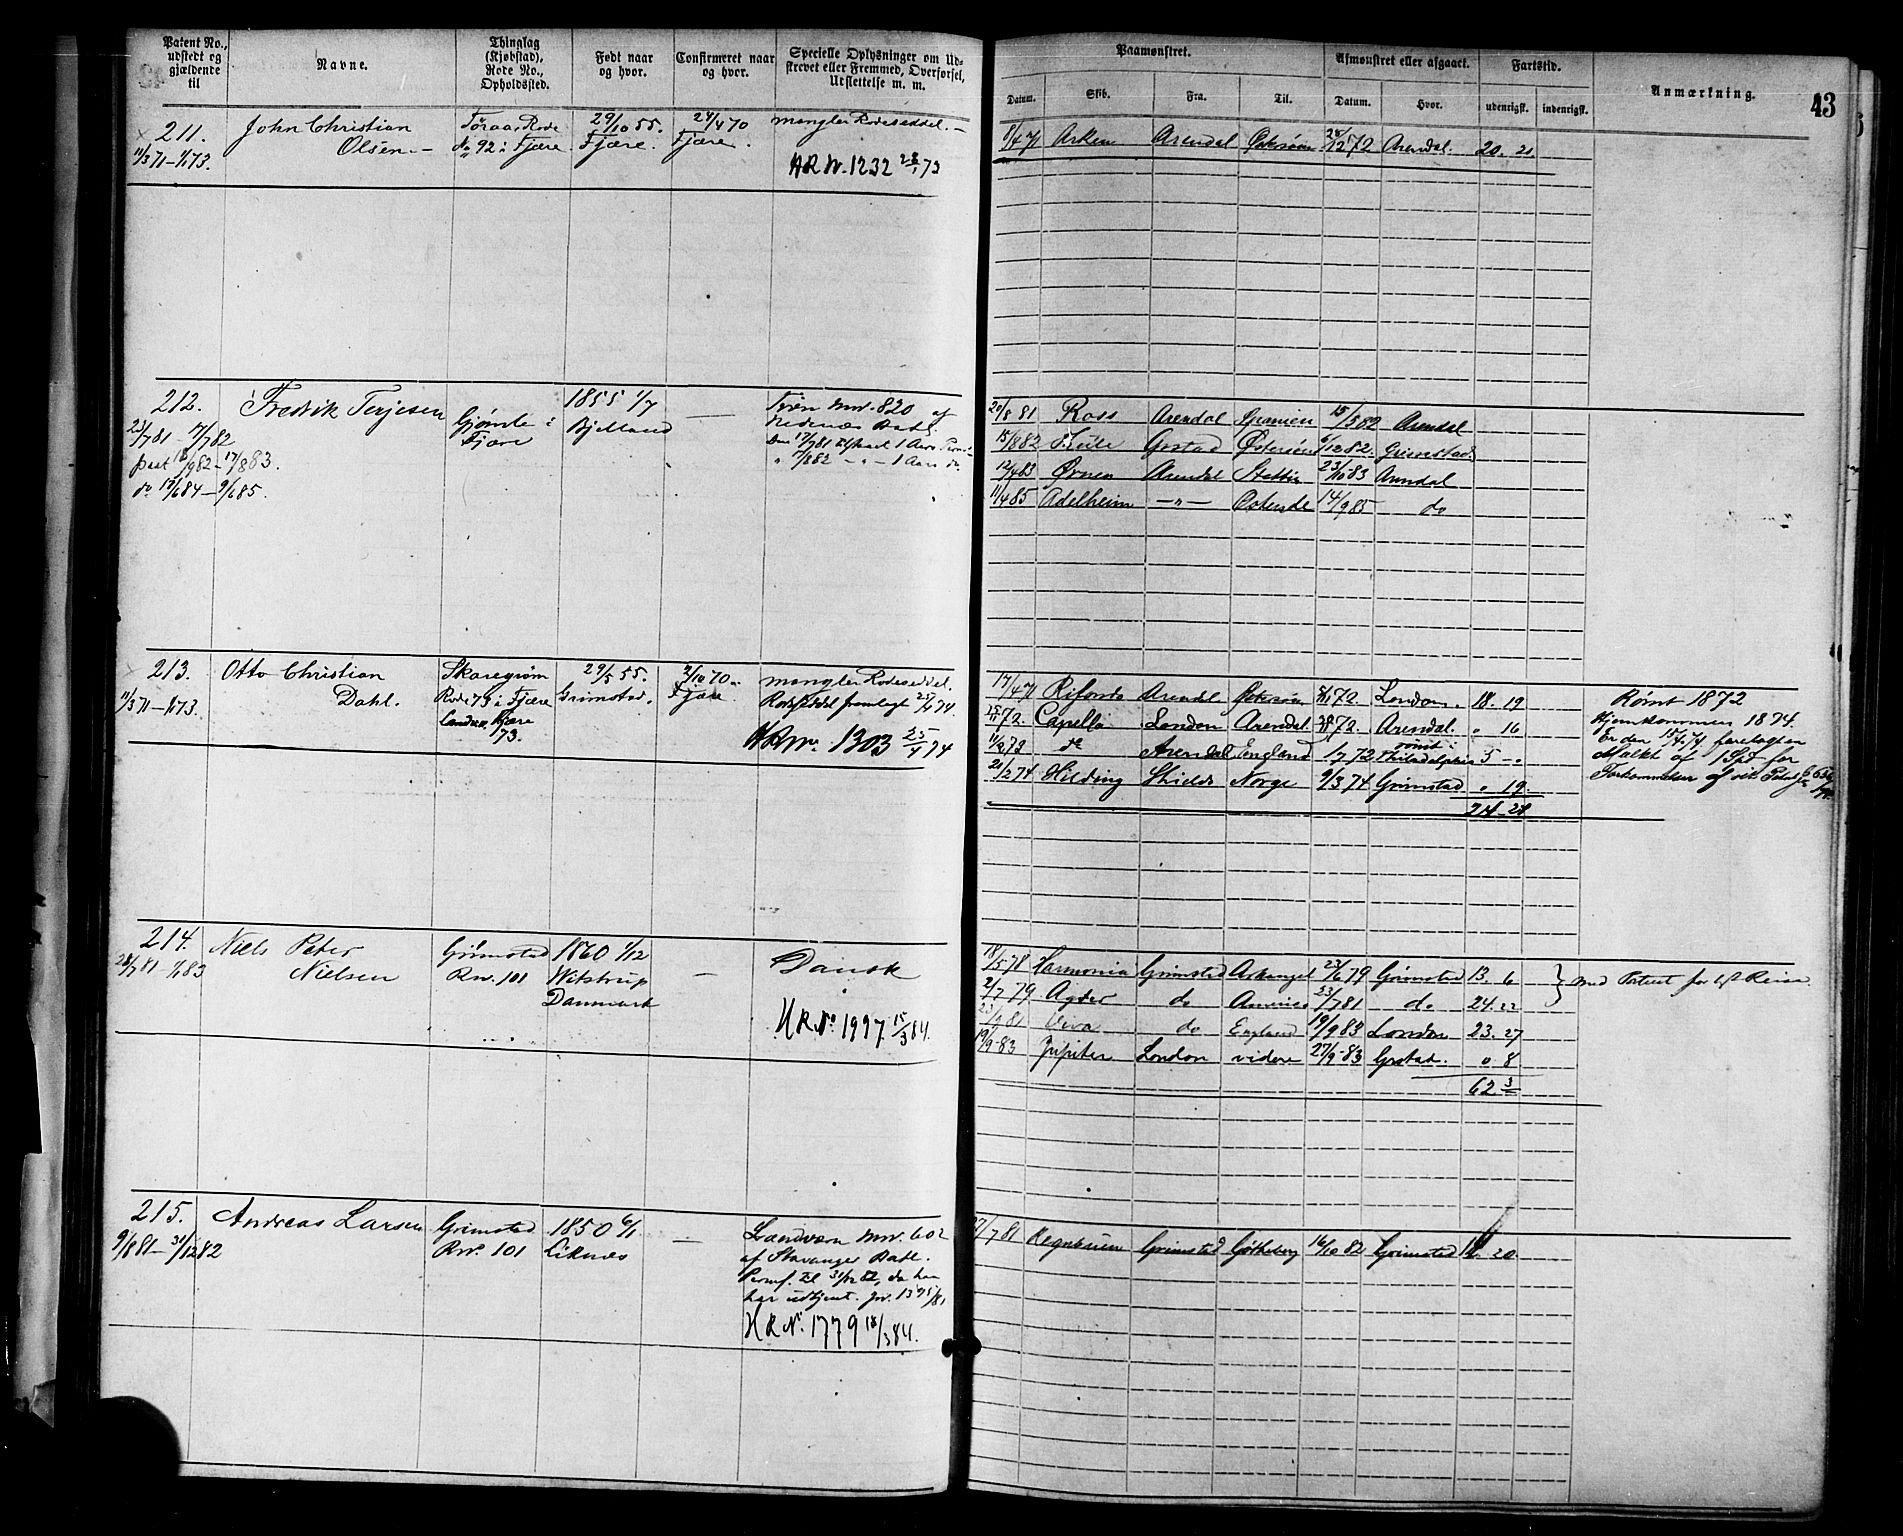 Patent No., udstedt og gjældende til
Navne.
Thinglag (Kjøbstad), Rode No., Opholdssted.
Født naar og hvor.
Confirmeret naar og hvor.
Specielle Oplysninger om Udskrevet eller Fremmed, Overførsel, Udslettelse m. m.
Paamønstret.
Afmønstret eller afgaaet.
Fartstid.
Anmærkning.
43
Datum.
Skib.
Fra.
Til.
Datum.
Hvor.
udenrigsk.
indenrigsk.
211.
11/3 71 – 1/1 73.
John Christian
Olsen.
Rode
92 i Fjære
29/10 55.
Fjære.
24/4 70
Fjære.
mangler Rodeseddel.
HR No. 1232
8/4 71 Arken Arendal Østersøen 72 Arendal. 20. 21.
212.
23/7 81 – 17/7 82
pact 18/9 82 – 17/8 83.
do 18/6 84 – 9/6 85.
Fredrik Terjesen
i
Fjære
1855 1/7
Bjelland
—
No. 820 af
Nedenæs Batl.
20/8 81 Ross Arendal 15/3 82 Arendal
15/8 82 Grstad Østersøen 6/12 82. Grimstad
12/4 83 Ørnen Arendal Stettin 23/10 83 Arendal
11/4 85 Adelheim —"— Ostende 14/9 85 do
213.
11/3 71 – 1/1 73.
Otto Christian
Dahl.
Skaregrøm
Rode 73 i Fjære
Fjære
73.
29/5 55.
Grimstad.
2/10 70
Fjære
mangler Rodeseddel.
Rodeseddel fremlagt 25/4 74.
HR No. 1303 25/4 74
17/4 71 Arendal Østersøen 72. London. 18. 19
72. Capella London Arendal 72. Arendal. " 16
73 do Arendal England 1/7 72 rømt i Philadelphia 5 – "
21/2 74 Hilding Shields Norge 9/3 74 Grimstad " 19.
24 – 24
Rømt 1872
Hjemkommen 1874.
Er den 15/4 74 foretagen
Mulkt af 1 Spd for
Forkommelse af sit Patent
214.
28/7 81 – 1/1 83
Niels Peter
Nielsen
Grimstad
R No. 101
1860 1/12
Witstrup
Danmark
—
Dansk
HR No 1997 15/3 84.
18/5 78 Harmonia Grimstad Arkangel 23/6 79 Grimstad 13. 6
2/7 79 Agder do 23/7 81 do 24. 22
81 Viva do England 19/9 83 London 23. 27
19/9 83 Jupiter London videre 27/9 83 Grstad. " 8
62 3
} med Patent for
215.
9/8 81 – 31/12 82
Andreas Larsen
Grimstad
R No. 101
1850 6/1
Liknæs
—
Landværn No. 602
af Stavanger Batl.
Permf. til 31/12 82, da han
har udtjent. Jv. 1375/81
HR No. 1779 18/3 84.
7 81 Regnbuen Grimstad Gøtheborg 16/10 82 Grimstad 20.